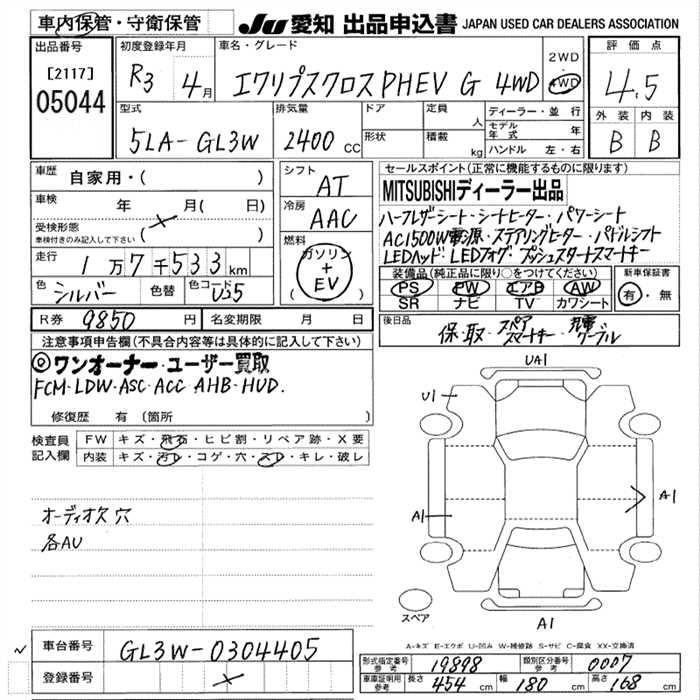 車内保管・守衛保管
JU 愛知 出品申込書 JAPAN USED CAR DEALERS ASSOCIATION
出品番号
[2117]
05044
初度登録年月
R3 4月
車名・グレード
エクリプスクロスPHEV G 4WD
2WD
4WD
評価点
4.5
外装 内装
B B
型式
5LA-GL3W
排気量
2400 CC
ドア
形状
定員 人
積載 kg
ディーラー・並行
モデル年式 年
ハンドル 左・右
車歴
自家用・( )
車検 年 月( 日)
受検形態
車検付きのみ記入して下さい ( × )
走行
1万7千533km
色 シルバー 色替 色コード U25
シフト
AT
冷房
AAC
燃料
ガソリン
+
( EV )
セールスポイント(正常に機能するものに限ります)
MITSUBISHIディーラー出品
ハーフレザーシート・シートヒーター・パワーシート
AC1500W電源・ステアリングヒーター・パドルシフト
LEDヘッド・LEDフォグ・プッシュスタートスマートキー
装備品(純正品に限り○をつけてください) 新車保証書
PS PW エアB AW
SR ナビ TV カワシート
有・無
R券 9850円 名変期限 月 日
後日品
保・取・スペアスマートキー・充電ケーブル
注意事項申告欄(不具合内容等は具体的に記入して下さい)
◎ワンオーナー・ユーザー買取
FCM・LDW・ASC・ACC AHB・HUD.
修復歴 有 (箇所 )
検査員記入欄
FW キズ・飛石・ヒビ割・リペア跡・X要
内装 キズ・汚レ・コゲ・穴・スレ・キレ・破レ
オーディオ欠 穴
各AU
UA1
U1
A1
A1
スペア
A1
A-キズ E-エクボ U-凹み W-補修跡 S-サビ C-腐食 XX-交換済
車台番号 GL3W-0304405
登録番号 ×
形式指定番号 参考 19898 類別区分番号 参考 0007
車庫証明用 参考 長さ 454 cm 幅 180 cm 高さ 168 cm